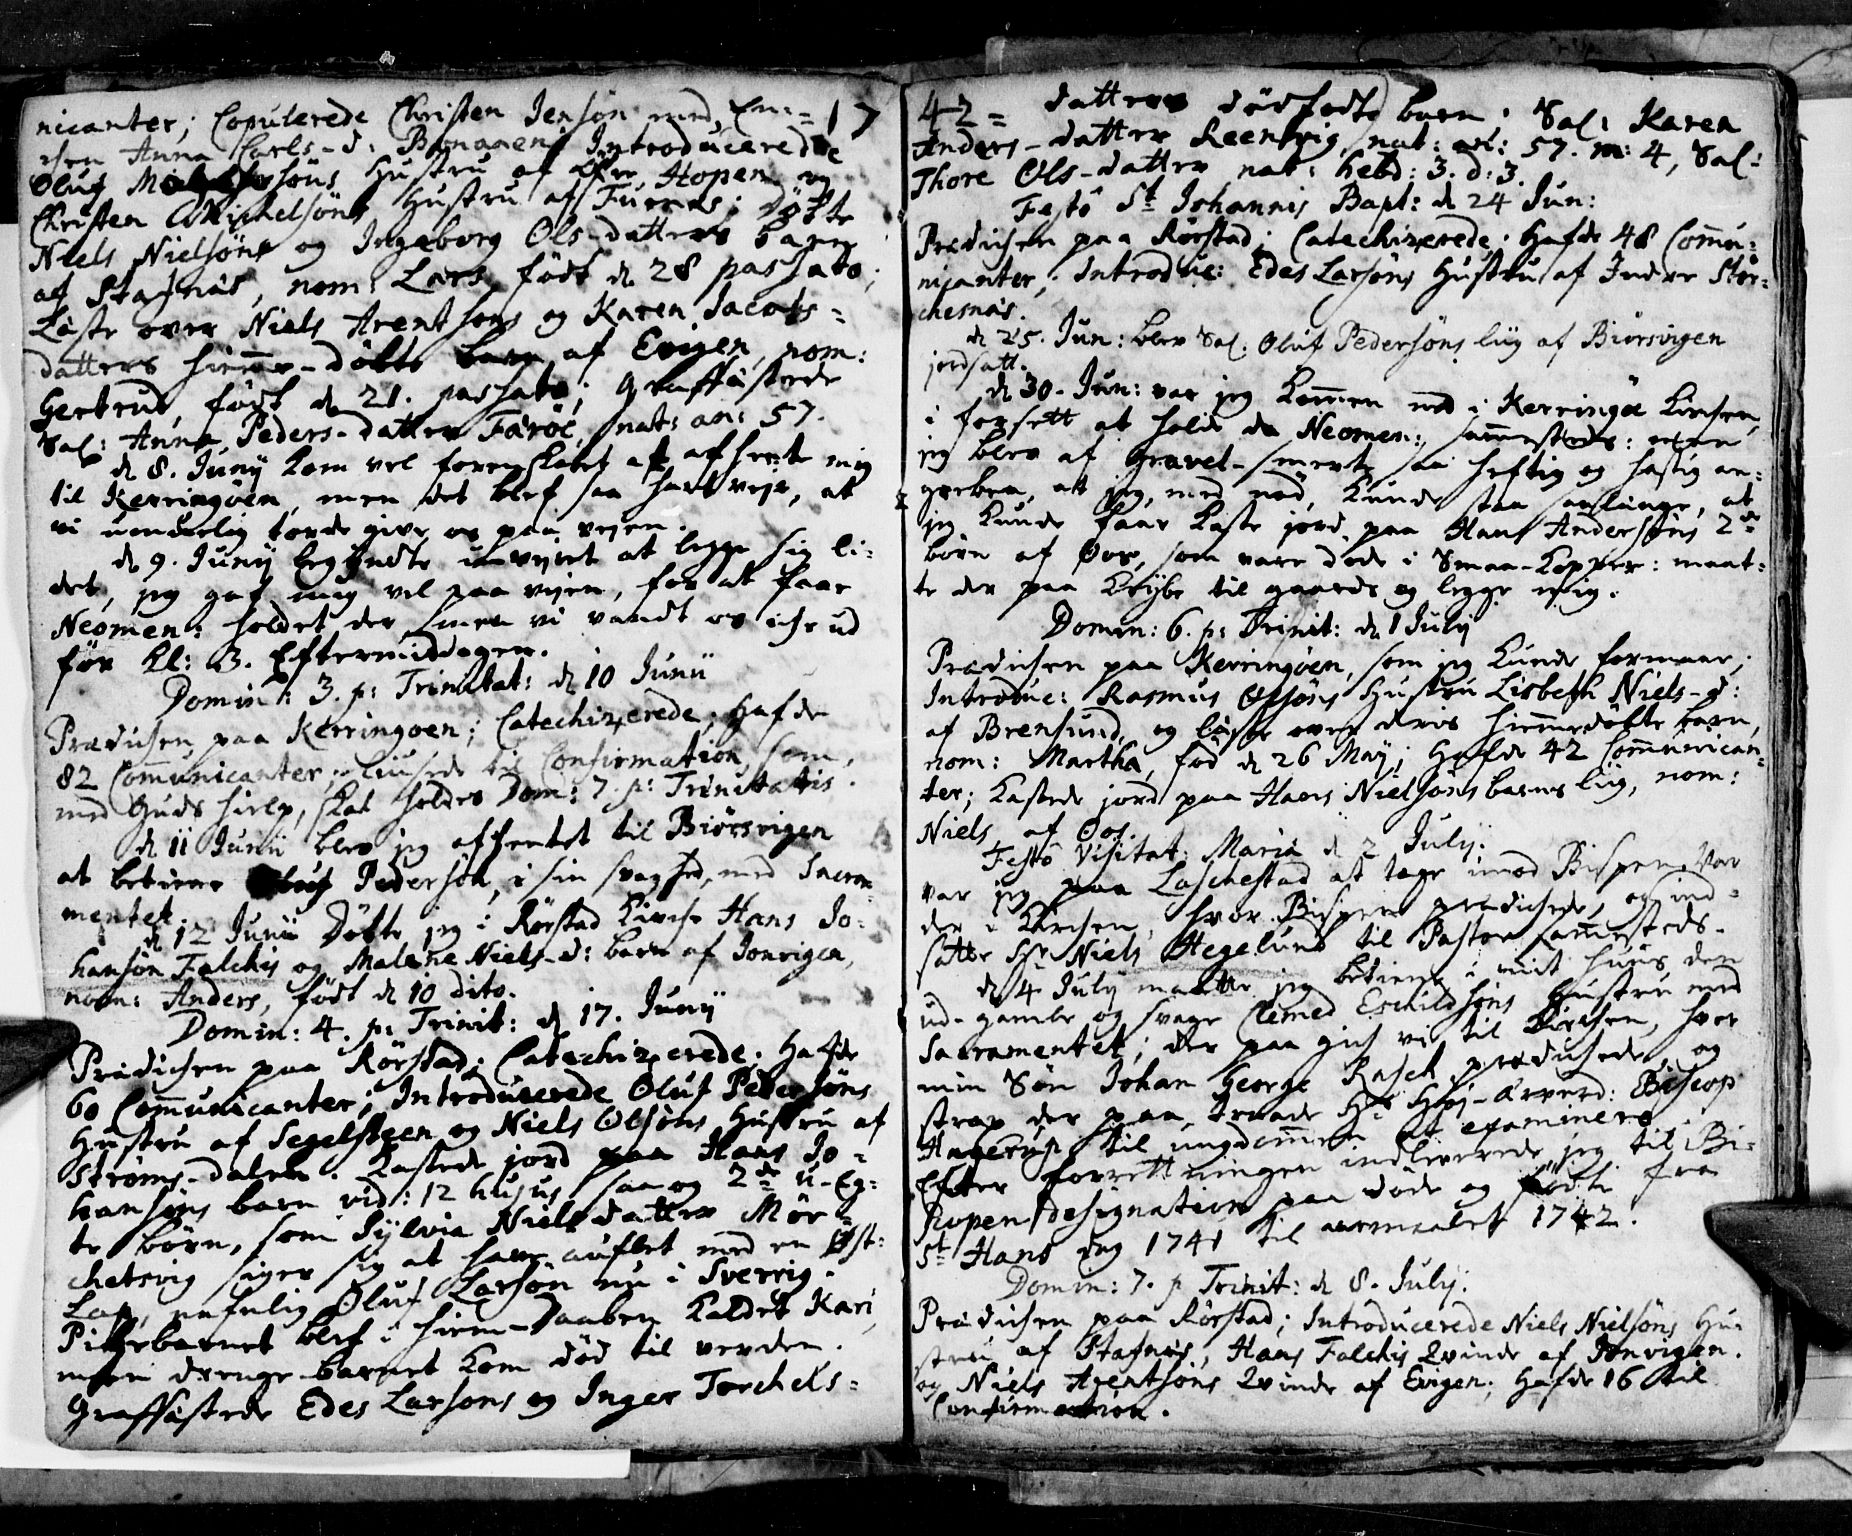 nicanter; Copulerede Christen Jensøn med En- = 17
chen Anna Carls-d: Introducerede
Oluf Hustru af Hopen og
Christen Michelsøns Hustru af Fuernes; døbte
Niels Nielsøns og Ingeborg Ols-datters barn
af Stafnæs, nom: Lars, født d 28 passato;
Læste over Niels Arentsøns og Karen Jacobs-
datters hiemme-døbte barn af Evigen, nom:
Gertrud, født d 21. passato; Graffæstede
Sal: Anna Peders-datter Færøe, nat: an: 57.
d 8. Junij kom vel forenskabet at afhente mig
til Kerringøen, men det blef saa hart vejr, at
vi umuelig torde give os paa vejen.
d 9. Junij begyndte uvejret at legge sig li-
det, jeg gaf mig vel paa vejen, for at faae
Neomen: holdet der, men vi vandt os iche ud
før kl: 3. Eftermiddagen.
Domin: 3. p: Trinitat: d 10 Junii
Prædichen paa Kerringøen; Catechizerede; Hafde
82 Communicanter; liusede til Confirmation, som,
med Guds hielp, skal holdes Dom: 7. p: Trinitatis.
d 11 Junii blev jeg afhentet til Biørsvigen
at betiene Oluf Pedersøn, i sin svaghed, med Sacra-
mentet.
d 12 Junii Døbte jeg i Rørstad Kirche Hans Jo-
hansøn Falchis og Malene Niels-d: barn af Jonvigen,
nom: Anders, født d 10 dito.
Domin: 4. p: Trinit: d 17. Junij
Prædichen paa Rørstad; Catechizerede; Hafde
60 Communicanter; Introducerede Oluf Pedersøns
Hustru af Segelsteen og Niels Olsøns Hustru af
Strøms-dalen. Kastede jord paa Hans Jo-
hansøns barn vid: 12 hujus saa og 2de u-Eg-
te børn, som Sylvia Niels datter Mør-
chetsvig siger sig at have auflet med en Øst-
Lap, nafnlig Oluf Larsøn nu i Sverrig.
Pigebarnet blef i hiem-Daaben kaldet Kari,
men drenge-barnet kom død til verden.
Graffæstede Edes Larsøns og Inger Torchels-
42 = datters dødfødte barn. Sal: Karen
Anders-datter Reensvig, nat: an: 57. m: 4, Sal:
Thore Ols-datter nat: hebd: 3. d: 3.
Festo St Johannis Bapt: d 24 Jun:
Prædichen paa Rørstad; Catechizerede; Hafde 48 Commu-
nicanter; Introduc: Edes Larsøns Hustru af Indre Stor-
chesnæs.
d 25. Jun: blev Sal: Oluf Pedersøns liig af Biørsvigen
jordsatt.
d 30. Jun: var jeg kommen ned i Kerringøe Kirchen,
i forsett at holde da Neomen: sammesteds: men
jeg blev af Gravel-smerte saa heftig og hastig an-
greben, at jeg, med nød, kunde staa saalænge, at
jeg kunde faae kaste jord paa Hans Andersøns 2de
børn af Øos, som vare døde i Smaa-Kopper: maat-
te der paa krybe til gaards og legge mig.
Domin: 6. p: Trinit: d 1 July
Prædichen paa Kerringøen, som jeg kunde formaae;
Introduc: Rasmus Olsøns Hustru Lisbeth Niels-d:
af Brensund, og læste over deris hiemmedøbte barn,
nom: Martha, fød d 26 Maij; Hafde 42 Communican-
ter; Kastede jord paa Hans Nielsøns barns liig, nom:
Niels, af Øos.
Festo Visitat: Mariæ d 2 July.
var jeg paa Laschestad at tage imod Bispen. Var
der i Kirchen, hvor Bispen prædichede, og ind-
satte Hr Niels Hegelund til Pastor sammesteds.
d 4 July maatte jeg betiene i mit huus den
ud-gamle og svage Clemed Eschildsøns Hustru med
Sacramentet; der paa gich vi til Kirchen, hvor
min Søn Johan George Rasch prædichede, og
strax der paa traade Hr Høj-ærverd: Biscop
Hagerup til ungdommen at examinere
Efter forrettningen indleverede jeg til Bi-
spen designation paa døde og fødte fra
St Hans dag 1741 til aarmaalet 1742.
Domin: 7. p Trinit: d 8. July.
Prædichen paa Rørstad; Introducerede Niels Nielsøns Hu-
stru af Stafnæs, Hans Falchis Qvinde af Jonvigen.
og Niels Arentsøns Qvinde af Evigen; Hafde 16 til
Confirmation.